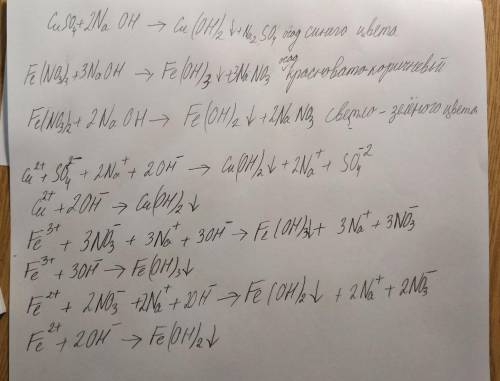 CuSO₄+2NaOH → Cu(OH)₂↓+Na₂SO₄ осад синего цвета
Fe(NO₃)₃+3NaOH → Fe(OH)₃↓+3NaNO₃ осад красновато-коричневый
Fe(NO₃)₂+2NaOH → Fe(OH)₂↓+2NaNO₃ светло-зелёного цвета
Cu²⁺+SO₄²⁻+2Na⁺+2OH⁻ → Cu(OH)₂↓+2Na⁺+SO₄⁻²
Cu²⁺+2OH⁻ → Cu(OH)₂↓
Fe³⁺+3NO₃⁻+3Na⁺+3OH⁻ → Fe(OH)₃↓+3Na⁺+3NO₃⁻
Fe³⁺+3OH⁻ → Fe(OH)₃↓
Fe²⁺+2NO₃⁻+2Na⁺+2OH⁻ → Fe(OH)₂↓+2Na⁺+2NO₃⁻
Fe²⁺+2OH⁻ → Fe(OH)₂↓